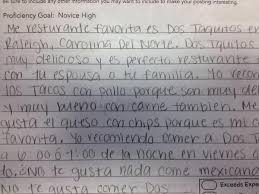 Be sure to include any other information you may want to include to make your posting interesting.
Proficiency Goal: Novice High
Me resturante favorita es Dos Taquitos en
Raleigh, Carolina Del Norte. Dos Tquitos
muy delicioso y es perfecto resturante
con tu espousa o tu familia. Yo recom
los Tacos con pallo parque son muy del
y muy bueno con carne tambien. Me
gusta el queso con chips porque es mi c
favorita. Yo recomiendo comer a Dos T
a 6:00 ó 1:00 de la noche en viernes
do. ¿No te gusta nada come mexicano
No te gusta comer Dos
Exceeds Expe